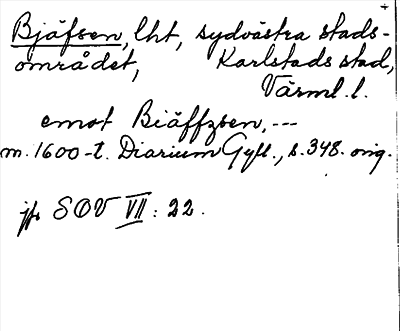 Bjäfsen, lht, sydvästra stads-
området, Karlstads stad,
Värml. l.
emot Biäffzsen, ---
m. 1600-t. Diarium Gyll., s. 348. orig.
jfr SOV VII : 22.